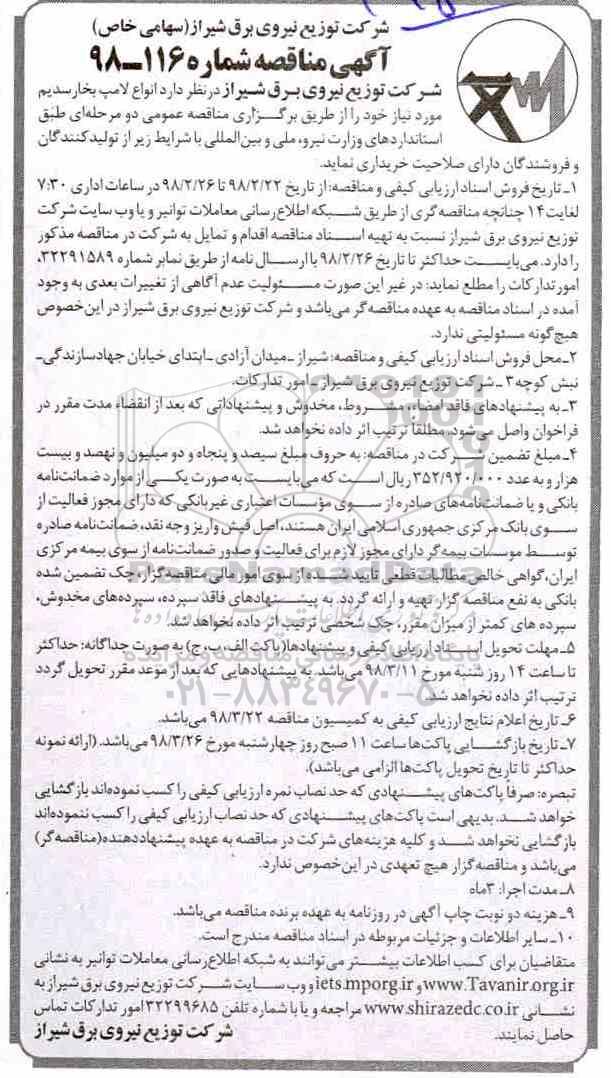 شرکت توزیع نیروی برق شیراز(سهامی خاص)
آگهی مناقصه شماره ۱۱۶-۹۸
شرکت توزیع نیروی برق شیراز درنظر دارد انواع لامپ بخارسدیم
مورد نیاز خود را از طریق برگزاری مناقصه عمومی دو مرحله‌ای طبق
استانداردهای وزارت نیرو، ملی و بین‌المللی با شرایط زیر از تولیدکنندگان
و فروشندگان دارای صلاحیت خریداری نماید.
۱ـ تاریخ فروش اسناد ارزیابی کیفی و مناقصه: از تاریخ ۹۸/۲/۲۲ تا ۹۸/۲/۲۶ در ساعات اداری ۷:۳۰
لغایت ۱۴ چنانچه مناقصه‌گری از طریق شبکه اطلاع‌رسانی معاملات توانیر و یا وب سایت شرکت
توزیع نیروی برق شیراز نسبت به تهیه اسناد مناقصه اقدام و تمایل به شرکت در مناقصه مذکور
را دارد. می‌بایست حداکثر تا تاریخ ۹۸/۲/۲۶ با ارسال نامه از طریق نمابر شماره ۳۲۲۹۱۵۸۹،
امور تدارکات را مطلع نماید: در غیر این صورت مسئولیت عدم آگاهی از تغییرات بعدی به وجود
آمده در اسناد مناقصه به عهده مناقصه‌گر می‌باشد و شرکت توزیع نیروی برق شیراز در این‌خصوص
هیچ‌گونه مسئولیتی ندارد.
۲ـ محل فروش اسناد ارزیابی کیفی و مناقصه: شیراز ـ میدان آزادی ـ ابتدای خیابان جهادسازندگی ـ
نبش کوچه ۳ ـ شرکت توزیع نیروی برق شیراز ـ امور تدارکات.
۳ـ به پیشنهادهای فاقد امضاء، مشروط، مخدوش و پیشنهاداتی که بعد از انقضاء مدت مقرر در
فراخوان واصل می‌شود، مطلقا ترتیب اثر داده نخواهد شد.
۴ـ مبلغ تضمین شرکت در مناقصه: به حروف مبلغ سیصد و پنجاه و دو میلیون و نهصد و بیست
هزار و به عدد ۳۵۲/۹۲۰/۰۰۰ ریال است که می‌بایست به صورت یکی از موارد ضمانت‌نامه
بانکی و یا ضمانت‌نامه‌های صادره از سوی مؤسسات اعتباری غیربانکی که دارای مجوز فعالیت از
سوی بانک مرکزی جمهوری اسلامی ایران هستند، اصل فیش واریز وجه نقد، ضمانت‌نامه صادره
توسط موسسات بیمه‌گر دارای مجوز لازم برای فعالیت و صدور ضمانت‌نامه از سوی بیمه مرکزی
ایران، گواهی خالص مطالبات قطعی تایید شده از سوی امور مالی مناقصه‌گزار، چک تضمین شده
بانکی به نفع مناقصه گزار تهیه و ارائه گردد. به پیشنهادهای فاقد سپرده، سپرده‌های مخدوش،
سپرده های کمتر از میزان مقرر، چک شخصی ترتیب اثر داده نخواهد شد.
۵ـ مهلت تحویل اسناد ارزیابی کیفی و پیشنهادها(پاکت الف، ب، ج) به صورت جداگانه: حداکثر
تا ساعت ۱۴ روز شنبه مورخ ۹۸/۳/۱۱ می‌باشد. به پیشنهادهایی که بعد از موعد مقرر تحویل گردد
ترتیب اثر داده نخواهد شد.
۶ـ تاریخ اعلام نتایج ارزیابی کیفی به کمیسیون مناقصه ۹۸/۳/۲۲ می‌باشد.
۷ـ تاریخ بازگشایی پاکت‌ها ساعت ۱۱ صبح روز چهارشنبه مورخ ۹۸/۳/۲۶ می‌باشد. (ارائه نمونه
حداکثر تا تاریخ تحویل پاکت‌ها الزامی می‌باشد).
تبصره: صرفا پاکت‌های پیشنهادی که حد نصاب نمره ارزیابی کیفی را کسب نموده‌اند بازگشایی
خواهد شد. بدیهی است پاکت‌های پیشنهادی که حد نصاب ارزیابی کیفی را کسب ننموده‌اند
بازگشایی نخواهد شد و کلیه هزینه‌های شرکت در مناقصه به عهده پیشنهاددهنده(مناقصه‌گر)
می‌باشد و مناقصه‌گزار هیچ تعهدی در این‌خصوص ندارد.
۸ـ مدت اجرا: ۳ماه
۹ـ هزینه دو نوبت چاپ آگهی در روزنامه به عهده برنده مناقصه می‌باشد.
۱۰ـ سایر اطلاعات و جزئیات مربوطه در اسناد مناقصه مندرج است.
متقاضیان برای کسب اطلاعات بیشتر می‌توانند به شبکه اطلاع‌رسانی معاملات توانیر به نشانی
www.Tavanir.org.ir و iets.mporg.ir و وب سایت شرکت توزیع نیروی برق شیراز به
نشانی www.shirazedc.co.ir مراجعه و یا با شماره تلفن ۳۲۲۹۹۶۸۵ امور تدارکات تماس
حاصل نمایند.
شرکت توزیع نیروی برق شیراز
ParsNamadData
۰۲۱-۸۸۳۴۹۶۷۰-۵